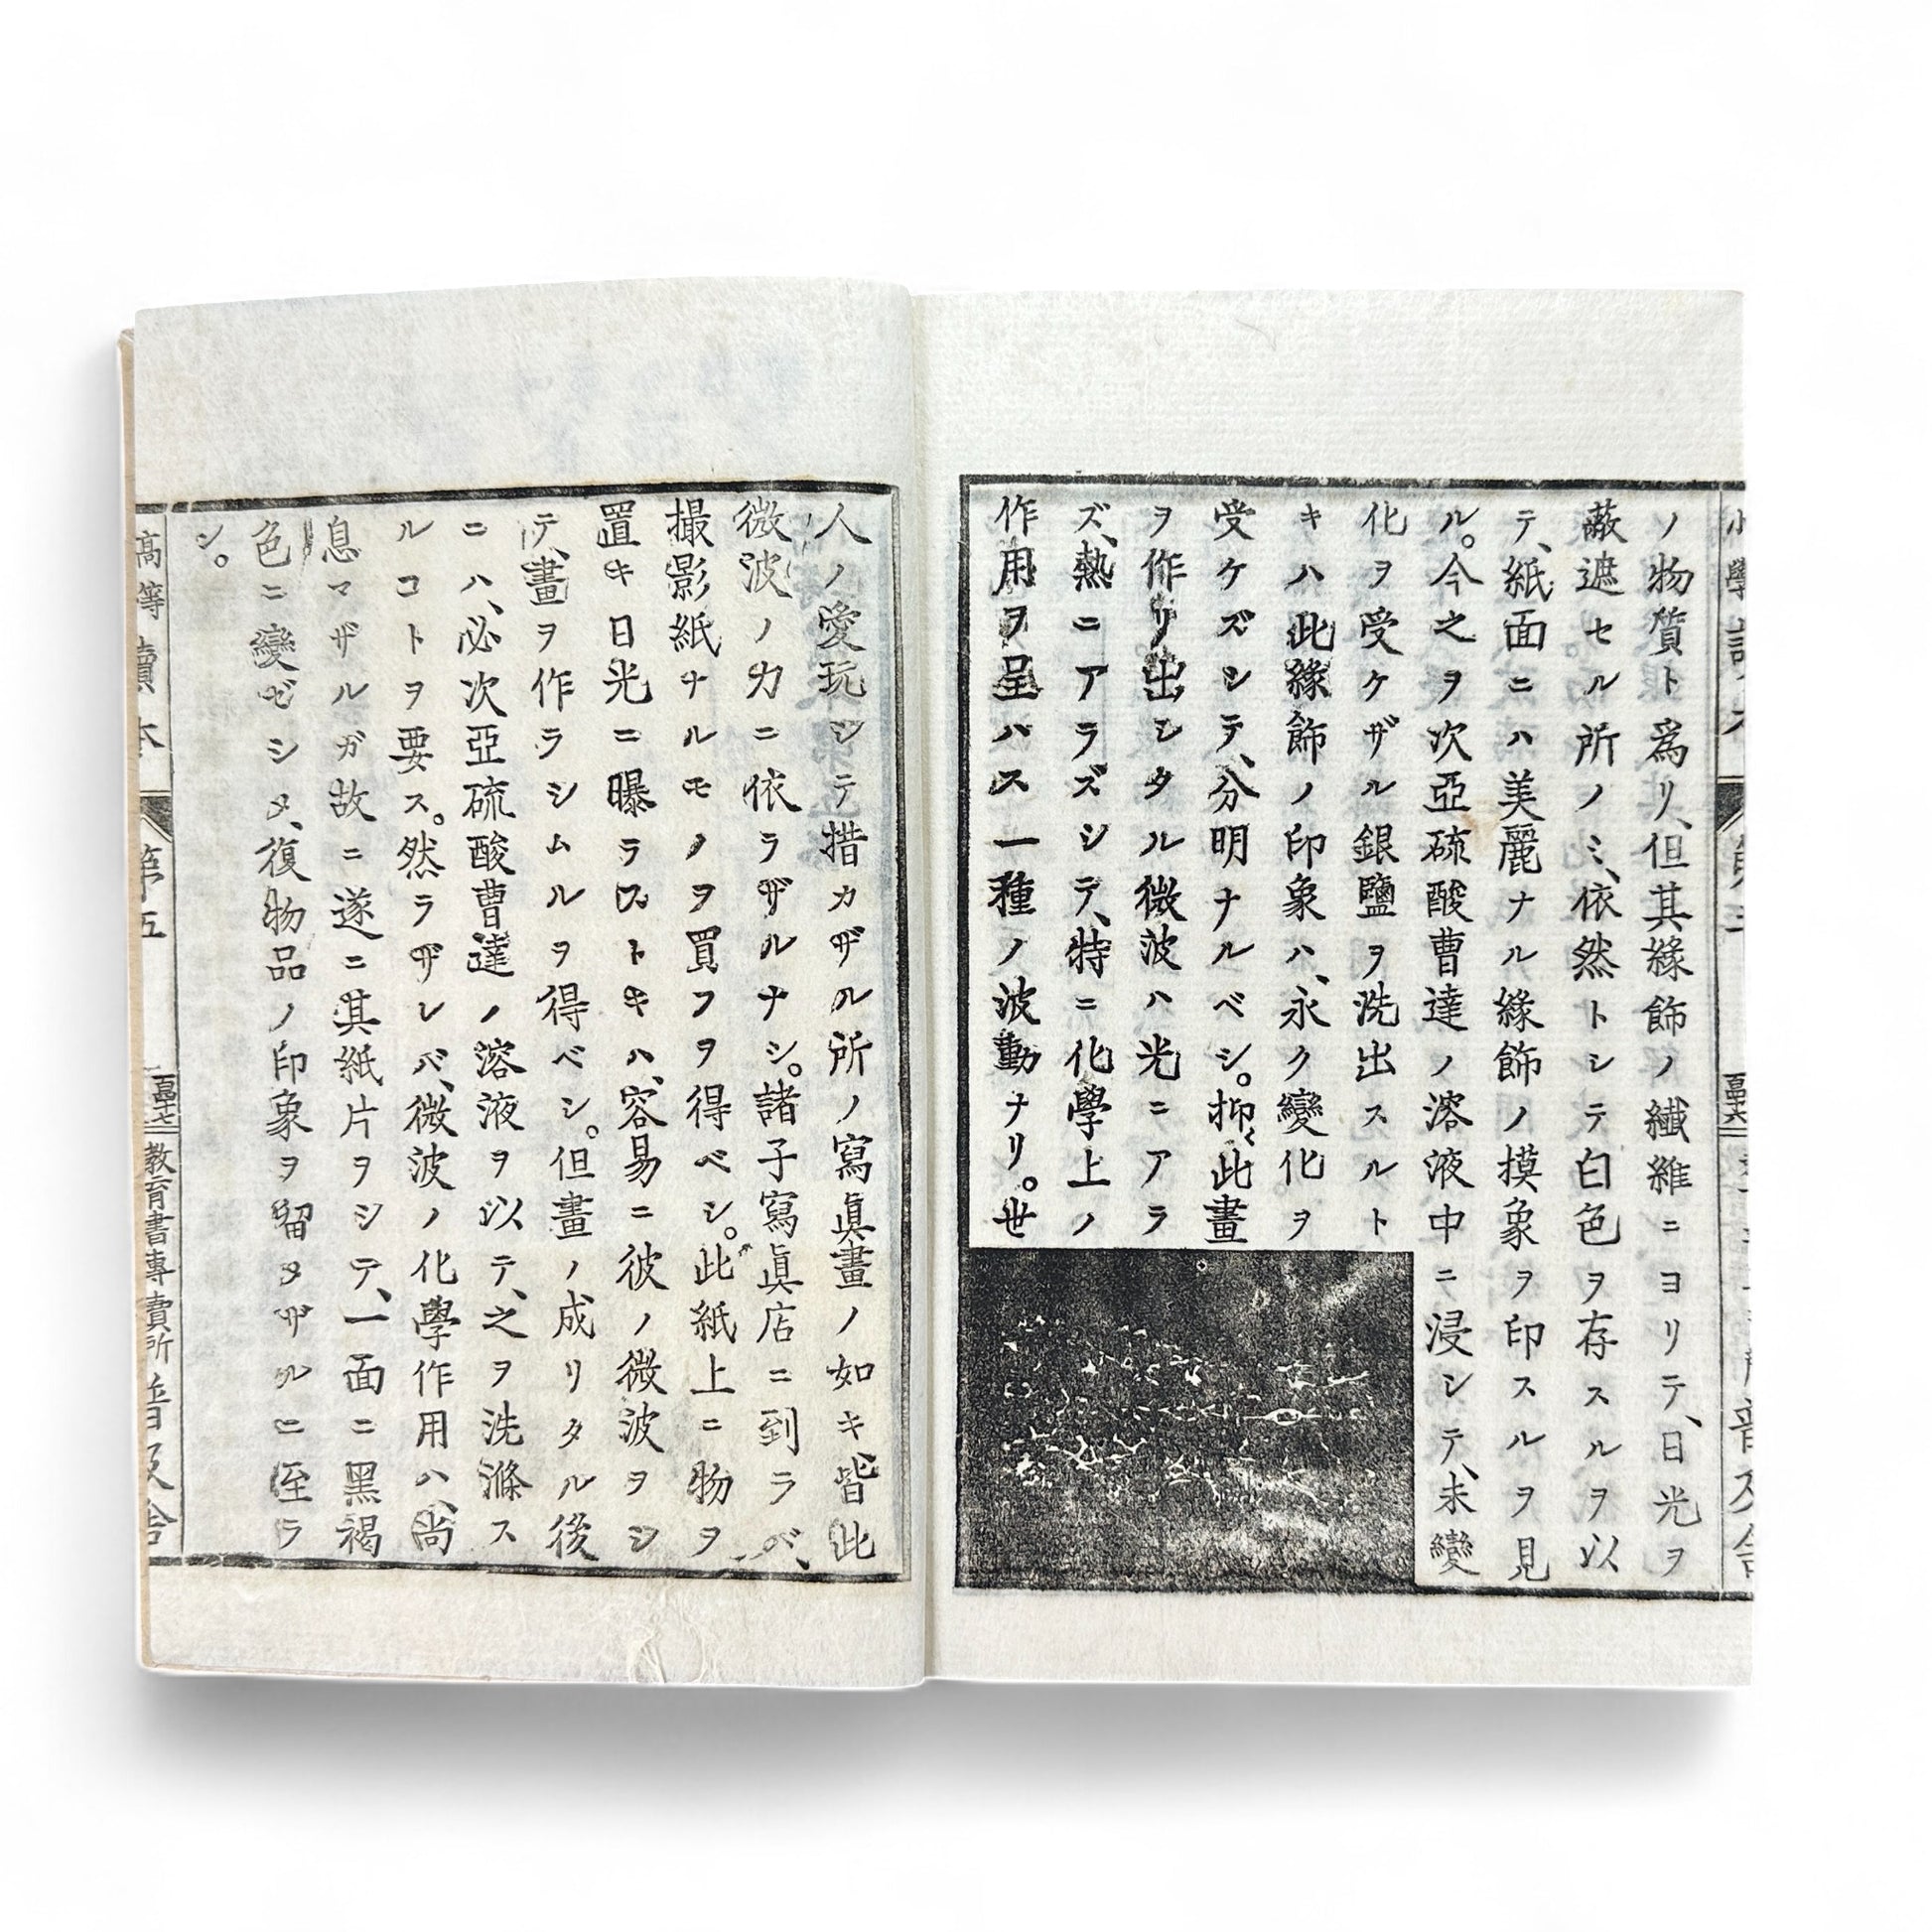 ノ物質ト爲リ、但其緣飾ノ纎維ニヨリテ、日光ヲ
蔽遮セル所ノミ、依然トシテ白色ヲ存スルヲ以
テ、紙面ニハ美麗ナル緣飾ノ摸象ヲ印スルヲ見
ル。今之ヲ次亞硫酸曹達ノ溶液中ニ浸シテ、未變
化ヲ受ケザル銀鹽ヲ洗出スルト
キハ此緣飾ノ印象ハ、永ク變化ヲ
受ケズシテ、分明ナルベシ。抑〻此畫
ヲ作リ出シタル微波ハ光ニアラ
ズ、熱ニアラズシテ、特ニ化學上ノ
作用ヲ呈ハス一種ノ波動ナリ。世
人ノ愛玩シテ措カザル所ノ寫眞畫ノ如キ皆此
微波ノ力ニ依ラザルナシ。諸子寫眞店ニ到ラバ、
撮影紙ナルモノヲ買フヲ得ベシ。此紙上ニ物ヲ
置キ日光ニ曝ラストキハ、容易ニ彼ノ微波ヲシ
テ、畫ヲ作ラシムルヲ得ベシ。但畫ノ成リタル後
ニハ、必次亞硫酸曹達ノ溶液ヲ以テ、之ヲ洗滌ス
ルコトヲ要ス。然ラザレバ、微波ノ化學作用ハ、尚
息マザルガ故ニ遂ニ其紙片ヲシテ、一面ニ黑褐
色ニ變ゼシメ、復物品ノ印象ヲ留メザルニ至ラ
シ。
高等讀本
第五
百四十七
教育書專賣所 普及舍